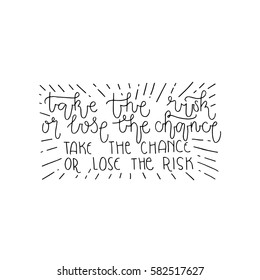 take the risk
or lose the chance
TAKE THE CHANCE
OR LOSE THE RISK
shutterstock.com · 582517627